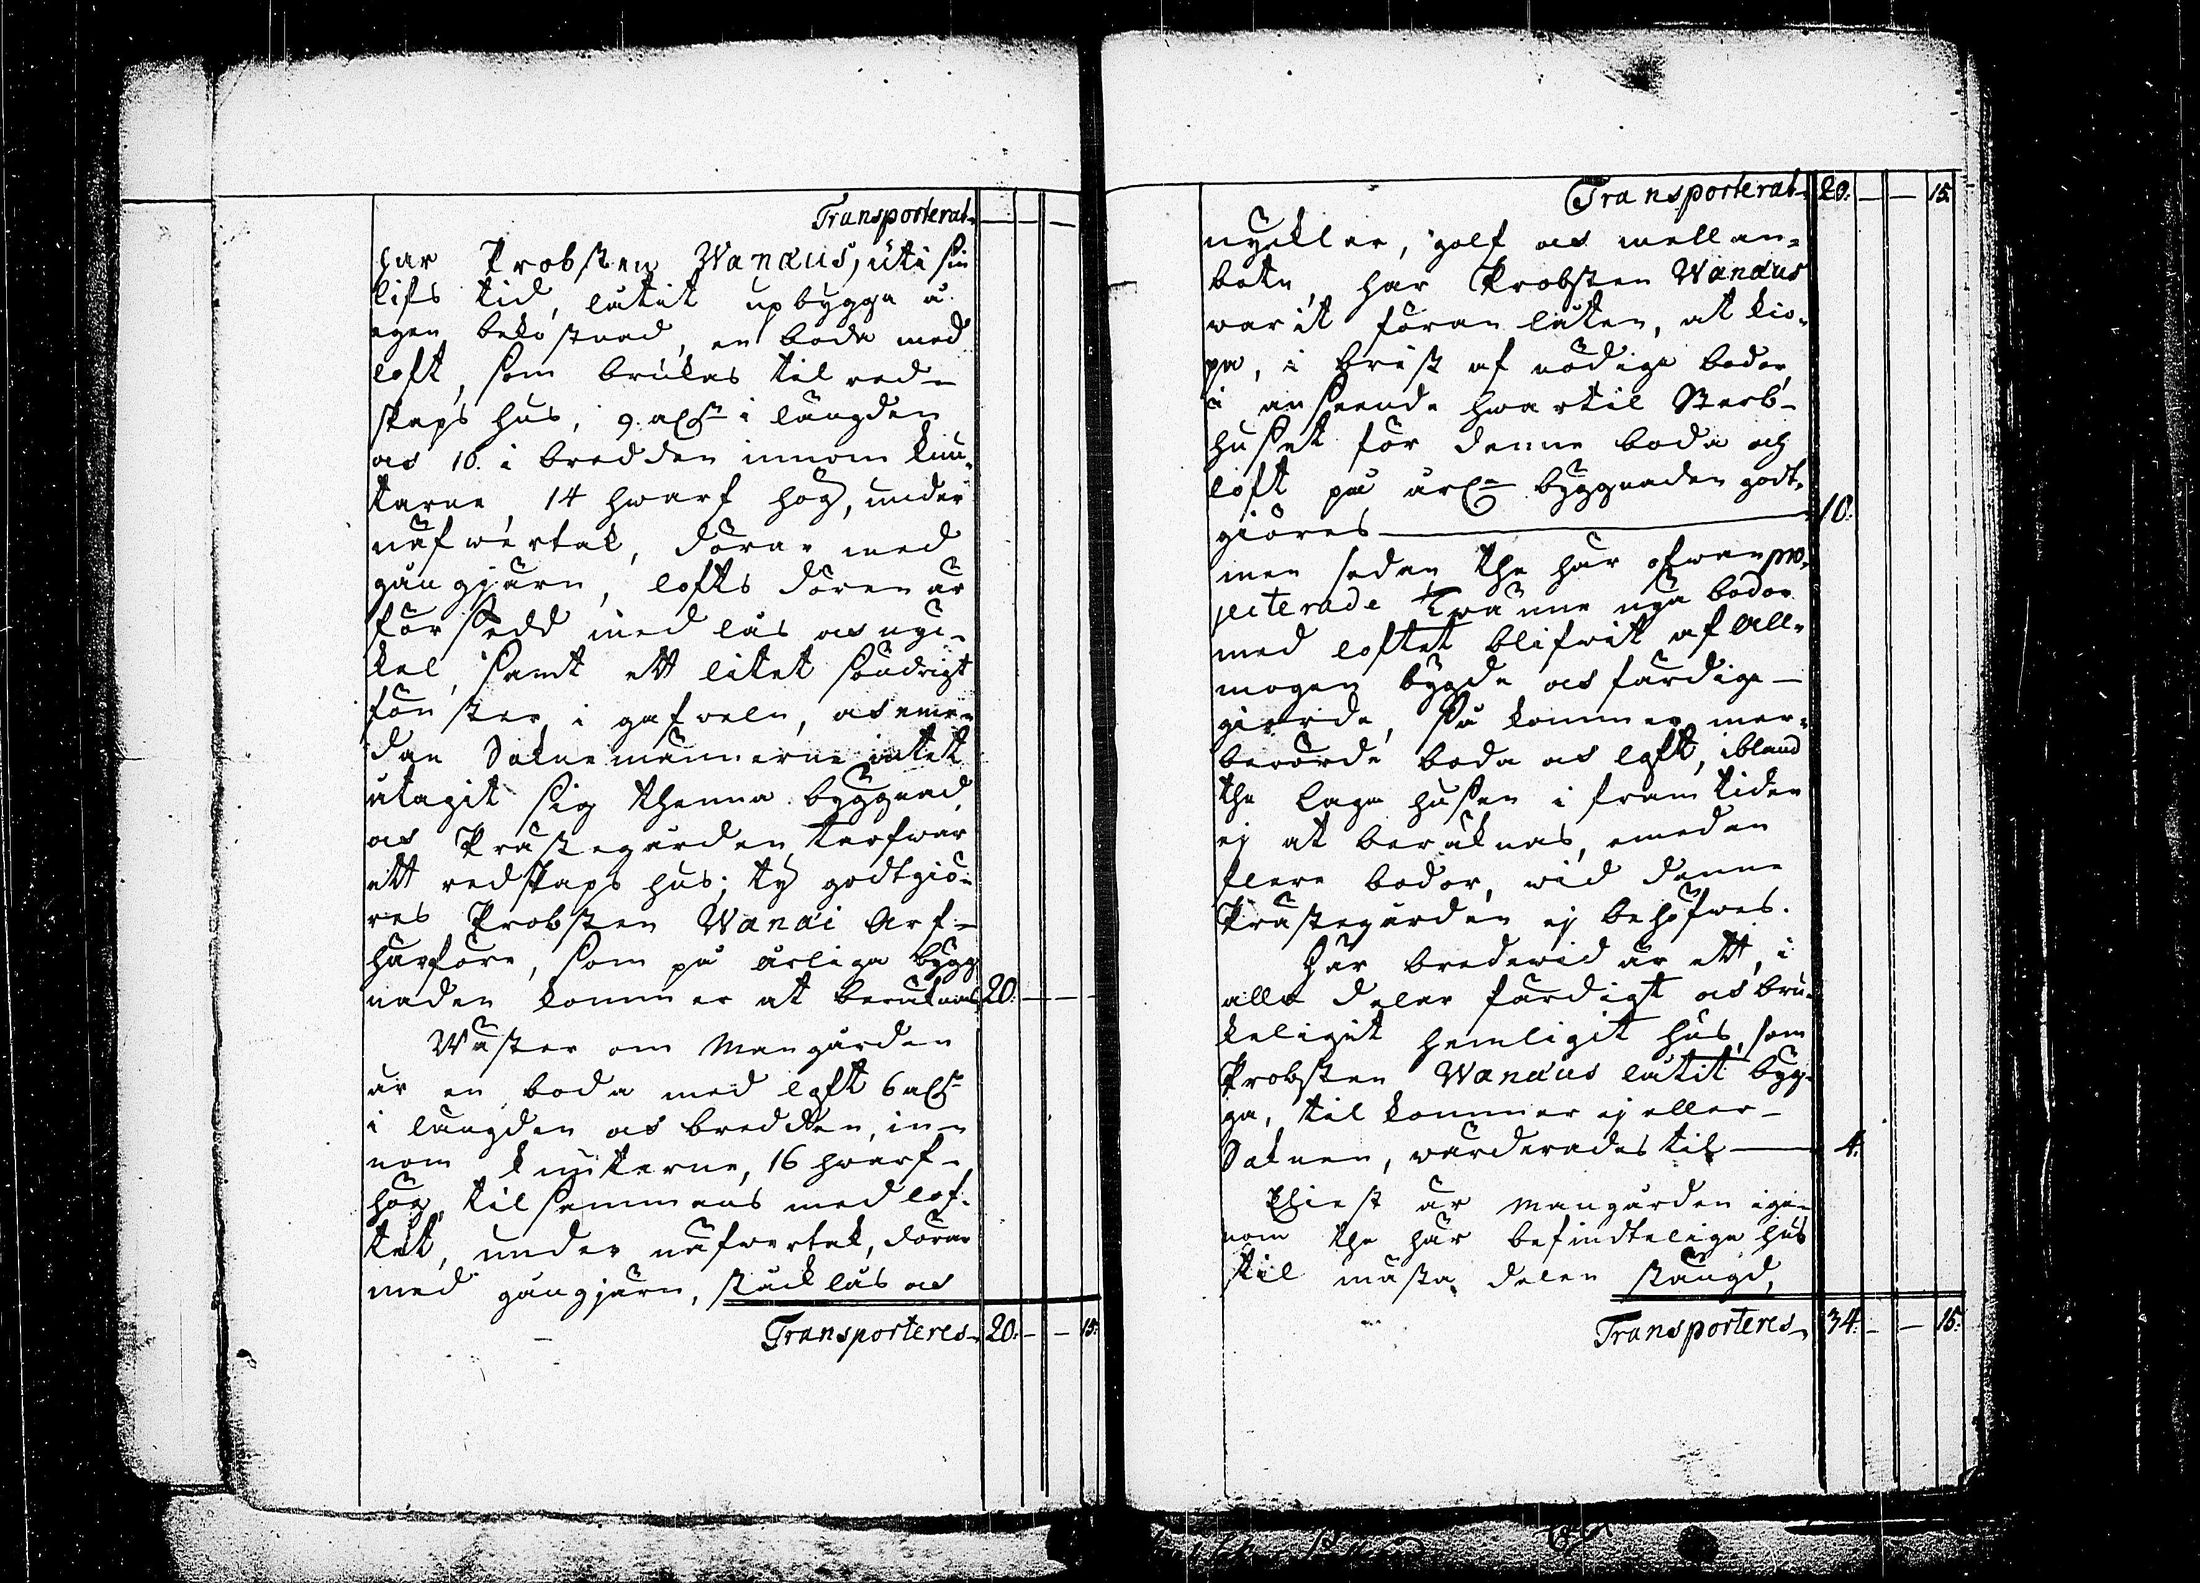 Transporterat — — —
har Probsten Wanæus, uti sin
lifs tid, låtit upbygga å
egen bekostnad, en bода med
loft, som brukas til red-
skaps hus, 9. aln:r i längden
och 10. i bredden innom knu-
tarne, 14 hwarf hög, under
näfwertak, dörar med
gångjärn, lofts dören är
försedd med lås och nyc-
kel, samt ett litet söndrigt
fönster i gafweln, och eme-
dan Soknemännerne intet
åtagit sig thenna byggnad,
och Prästegården tarfwar
ett redskaps hus; ty godtgiö-
res Probsten Wanæi Arf-
härföre, som på årliga bygg
naden kommer at beräknas 20. — —
Wäster om Mangården
är en boda med loft 6 aln:r
i längden och bredden, in-
nom knutarne, 16 hwarf-
hög, tilsammans med lof-
tet, under näfwertak, dörar
med gångjärn, stäcklås och
Transporteres 20. — — 15.
Transporterat 20. — — 15.
nycklar, golf och mellan-
botn, har Probsten Wanæus
warit föranlåten, at kiö-
pa, i brist af nödiga bodor,
i anseende hwartil Sterb-
huset för denne boda och
loft på årl:a byggnaden godt-
giöres 10.
men sedan the här ofwan pro-
jecterade Twänne nya bodor
med loftet blifwit af All-
mogen bygde och färdige-
giorde, så kommer mer-
berörde boda och loft, ibland
the laga husen i framtiden
ej at beräknas, emedan
flere bodor, wid denne
Prästegården ej behöfwes.
Här bredewid är ett, i
alla delar färdigt och bru-
keligit hemligit hus, som
Probsten Wanæus låtit byg-
ga, til kommer ej eller-
Soknen, wärderades til 4.
Eliest är Mangården ige-
nom the här befindtelige hus
til mästa delen stängd,
Transporteres 34. — — 15.